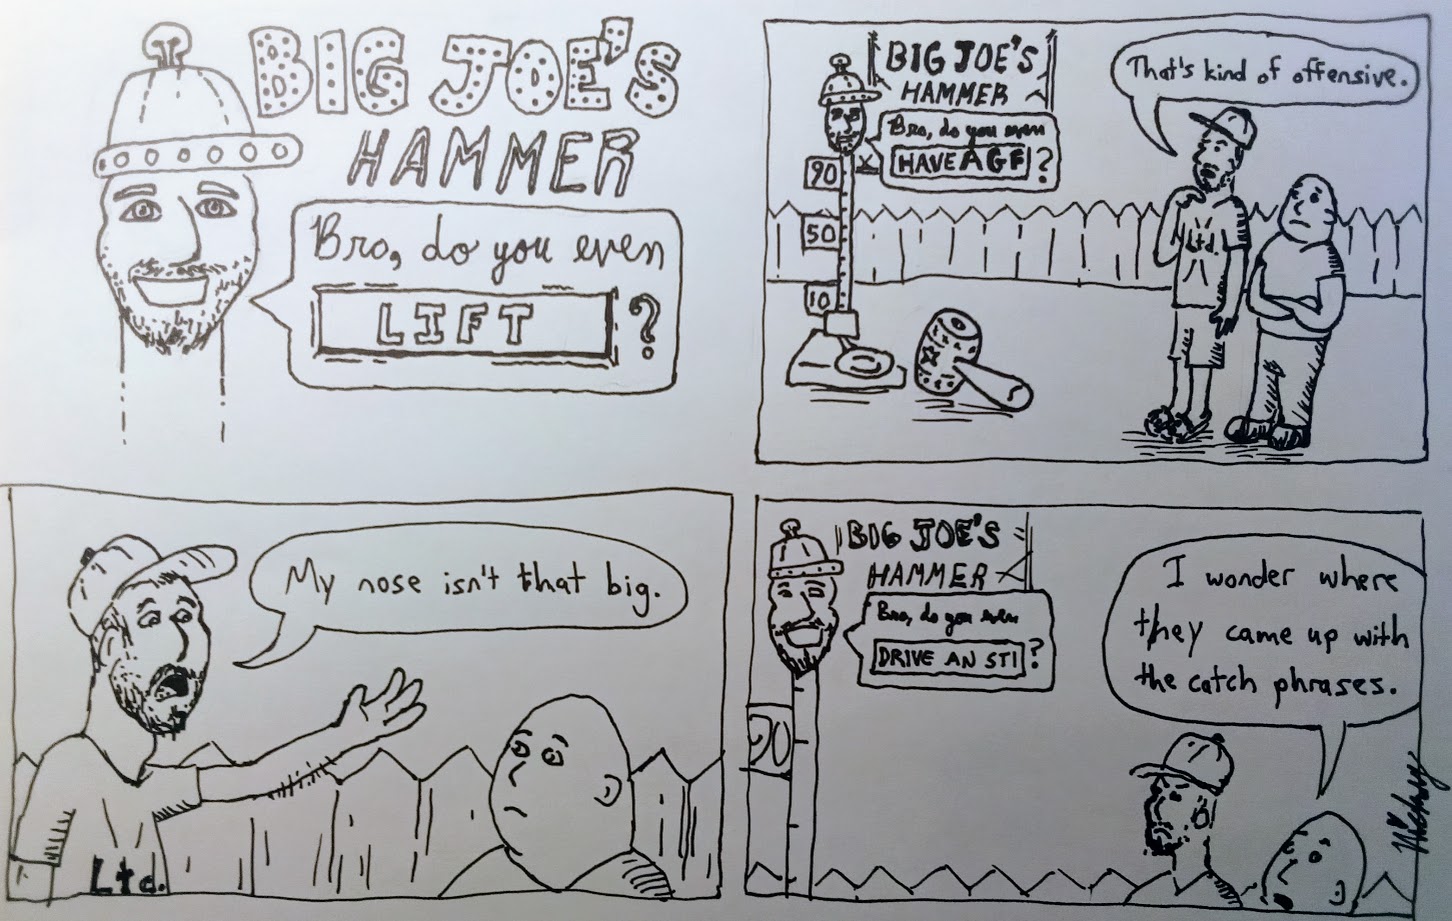 BIG JOE'S
HAMMER
Bro, do you even
LIFT ?
BIG JOE'S
HAMMER
Bro, do you even
HAVE A GF ?
90
50
10
That's kind of offensive.
Ltd.
My nose isn't that big.
Ltd.
BIG JOE'S
HAMMER
Bro, do you even
DRIVE AN STI ?
90
I wonder where
they came up with
the catch phrases.